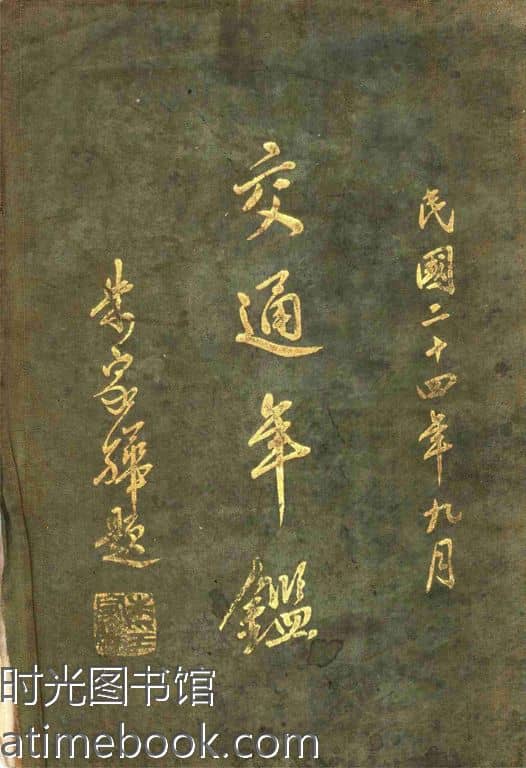 民國二十四年九月
交通年鑑
朱家驊題
时光图书馆
atimebook.com